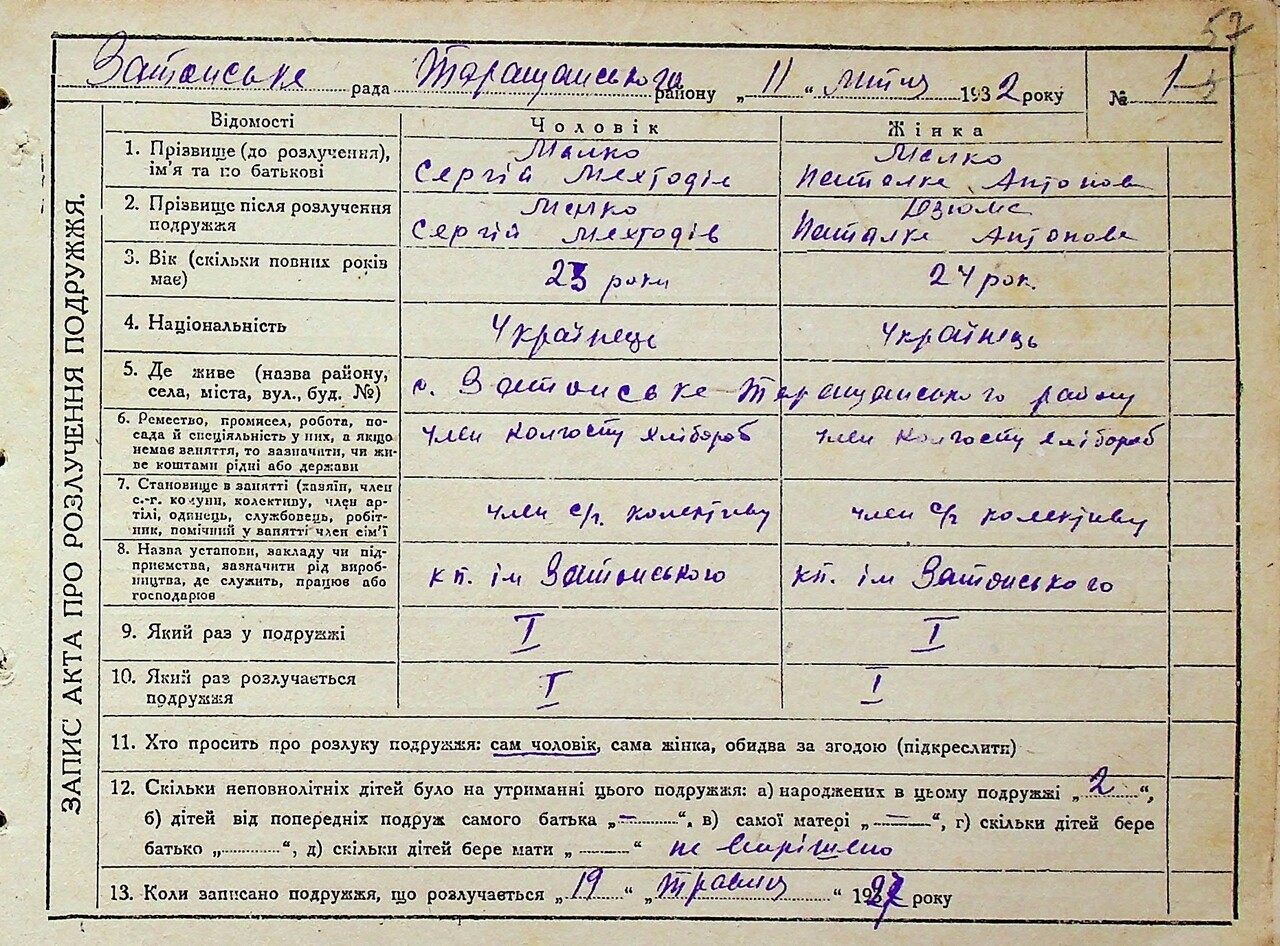 57
Затонське рада Таращанського району „ 11 “ липня 1932 року № 1
ЗАПИС АКТА ПРО РОЗЛУЧЕННЯ ПОДРУЖЖЯ.
Відомості Чоловік Жінка
1. Прізвище (до розлучення), ім'я та по батькові
Малко
Сергій Мехтодів
Малко
Наталка Антонова
2. Прізвище після розлучення подружжя
Малко
Сергій Мехтодів
Дзюма
Наталка Антонова
3. Вік (скільки повних років має)
23 роки
24 рок.
4. Національність
Українець
Українець
5. Де живе (назва району, села, міста, вул., буд. №)
с. Затонське Таращанського району
6. Ремество, промисел, робота, посада й спеціяльність у них, а якщо немає заняття, то зазначити, чи живе коштами рідні або держави
член колгоспу хлібороб
член колгоспу хлібороб
7. Становище в занятті (хазяїн, член с.-г. комуни, колективу, член артілі, одинець, службовець, робітник, помічний у занятті член сім'ї
член с/г. колективу
член с/г колективу
8. Назва установи, закладу чи підприємства, зазначити рід виробництва, де служить, працює або господарює
кп. ім Затонського
кп. ім Затонського
9. Який раз у подружжі
I
I
10. Який раз розлучається подружжя
I
I
11. Хто просить про розлуку подружжя: сам чоловік, сама жінка, обидва за згодою (підкреслити)
12. Скільки неповнолітніх дітей було на утриманні цього подружжя: а) народжених в цьому подружжі „ 2 “,
б) дітей від попередніх подруж самого батька „ – “, в) самої матері „ – “, г) скільки дітей бере
батько „ “, д) скільки дітей бере мати „ “ не вирішено
13. Коли записано подружжя, що розлучається „ 19 “ „ травня “ 1927 року